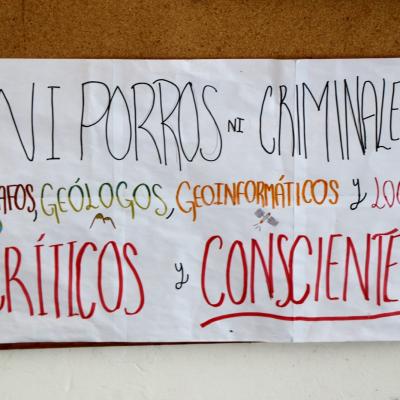 NI PORROS NI CRIMINALE
AFOS, GEÓLOGOS, GEOINFORMÁTICOS Y LOC
CRÍTICOS Y CONSCIENTE